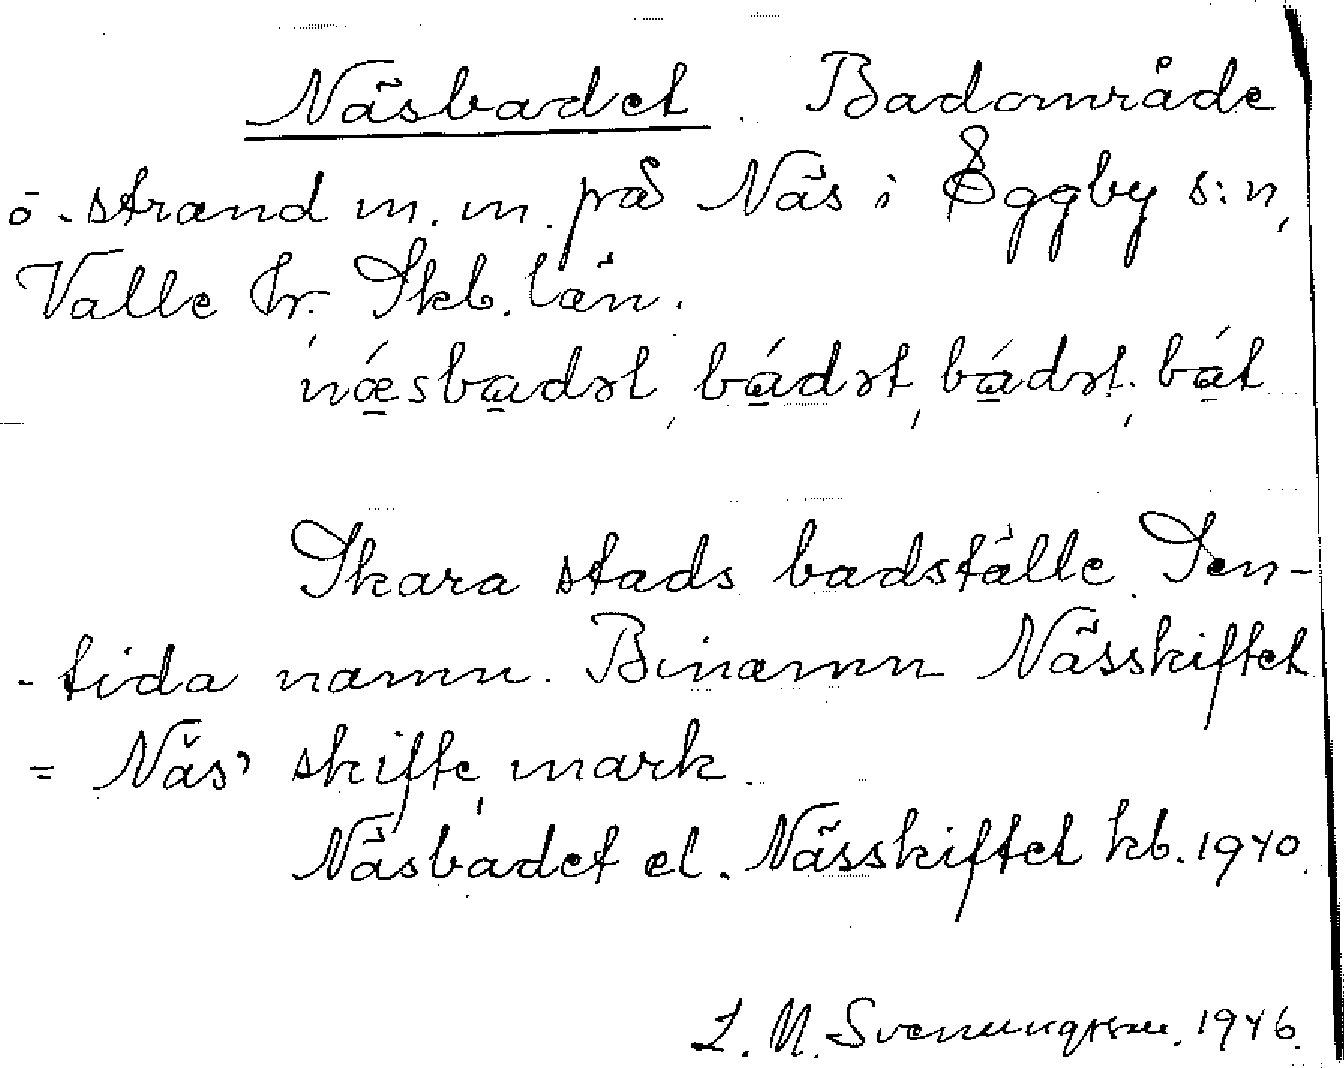 Näsbadet. Badområde
o. strand m.m. på Näs i Eggby s:n,
Valle hr. Skb. län.
nǽ̲sba̲dət, bá̲dət, bá̲dət, bát
Skara stads badställe. Sen-
-tida namn. Binamn Nässkiftet
= Näs' skifte, mark.
Näsbadet el. Nässkiftet kb. 1940.
L. N. Svenungsson. 1946.